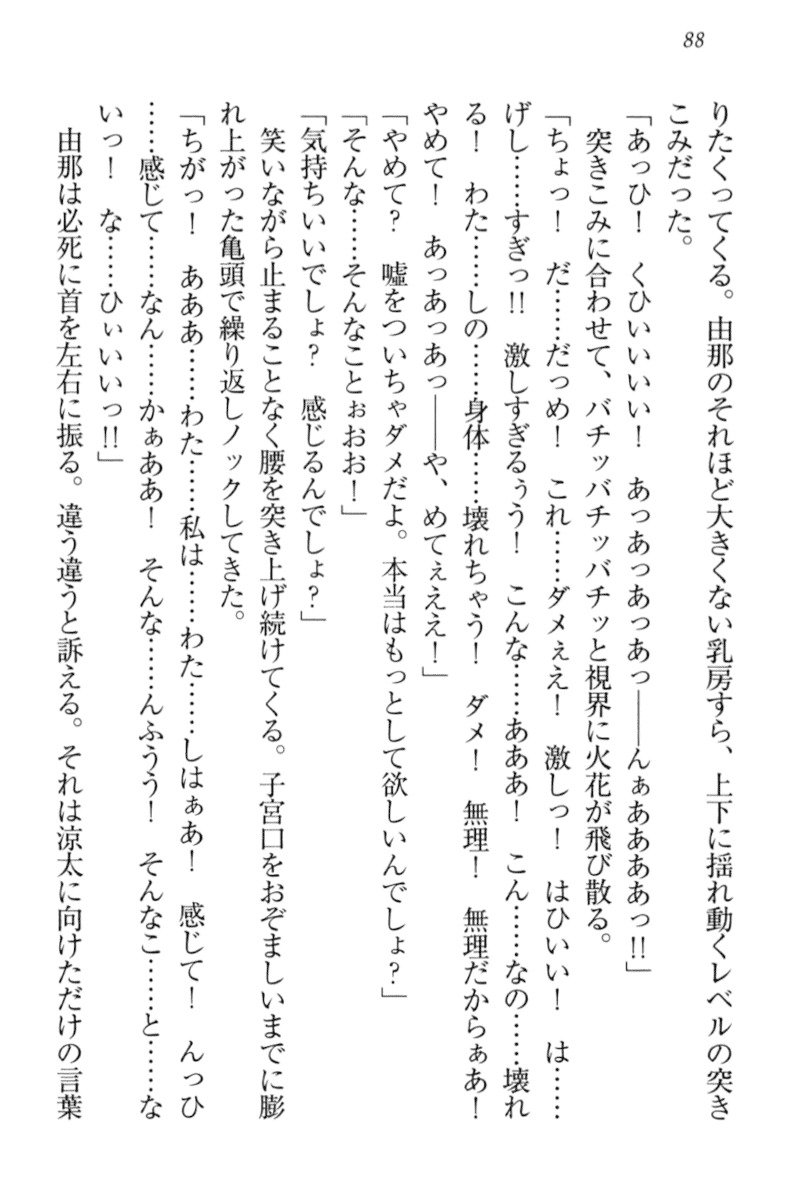 88
りたくってくる。由那のそれほど大きくない乳房すら、上下に揺れ動くレベルの突き
こみだった。
「あっひ！　くひいいいい！　あっあっあっあっ――んぁああああっ!!」
突きこみに合わせて、バチッバチッバチッと視界に火花が飛び散る。
「ちょっ！　だ……だっめ！　これ……ダメぇえ！　激しっ！　はひいい！　は……
げし……すぎっ!!　激しすぎるぅう！　こんな……あああ！　こん……なの……壊れ
る！　わた……しの……身体……壊れちゃう！　ダメ！　無理！　無理だからぁあ！
やめて！　あっあっあっ――や、めてぇええ！」
「やめて？　嘘をついちゃダメだよ。本当はもっとして欲しいんでしょ？」
「そんな……そんなことぉおお！」
「気持ちいいでしょ？　感じるんでしょ？」
笑いながら止まることなく腰を突き上げ続けてくる。子宮口をおぞましいまでに膨
れ上がった亀頭で繰り返しノックしてきた。
「ちがっ！　あああ……わた……私は……わた……しはぁあ！　感じて！　んっひ
……感じて……なん……かぁああ！　そんな……んふうう！　そんなこ……と……な
いっ！　な……ひぃいいっ!!」
由那は必死に首を左右に振る。違う違うと訴える。それは涼太に向けただけの言葉